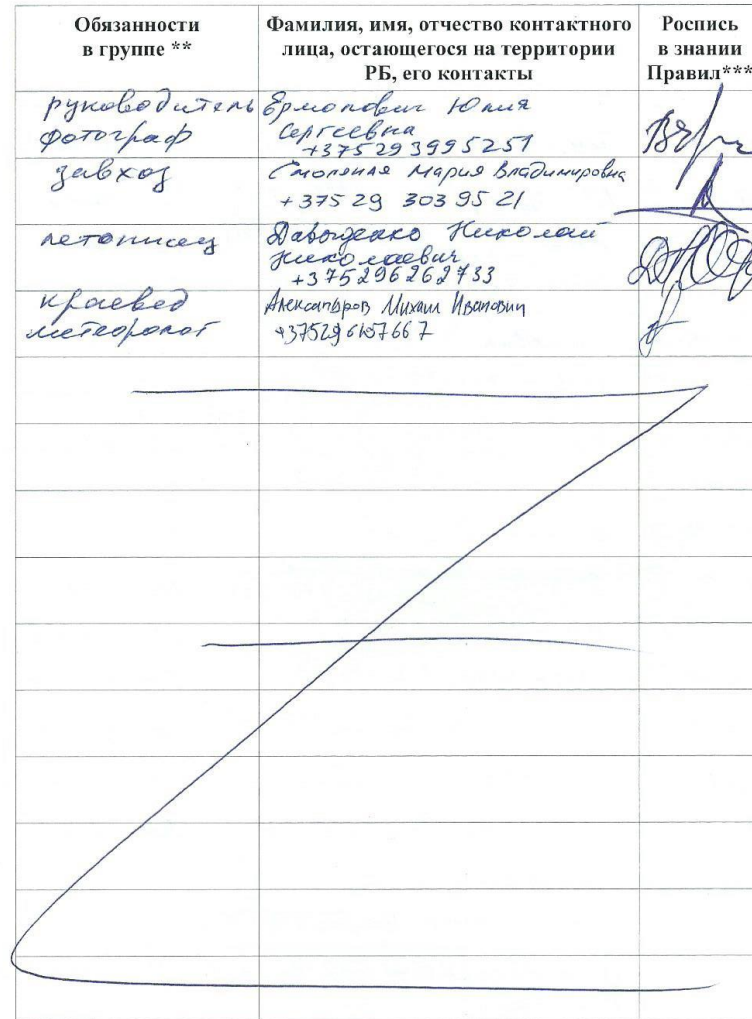 Обязанности
в группе **
Фамилия, имя, отчество контактного
лица, остающегося на территории
РБ, его контакты
Роспись
в знании
Правил***
руководитель
фотограф
Ермолович Юлия
Сергеевна
+375293995251
завхоз
Мария Владимировна
+375 29 303 95 21
летописец
Давыденко Николай
Николаевич
+375296262733
краевед
метеоролог
Александров Михаил Иванович